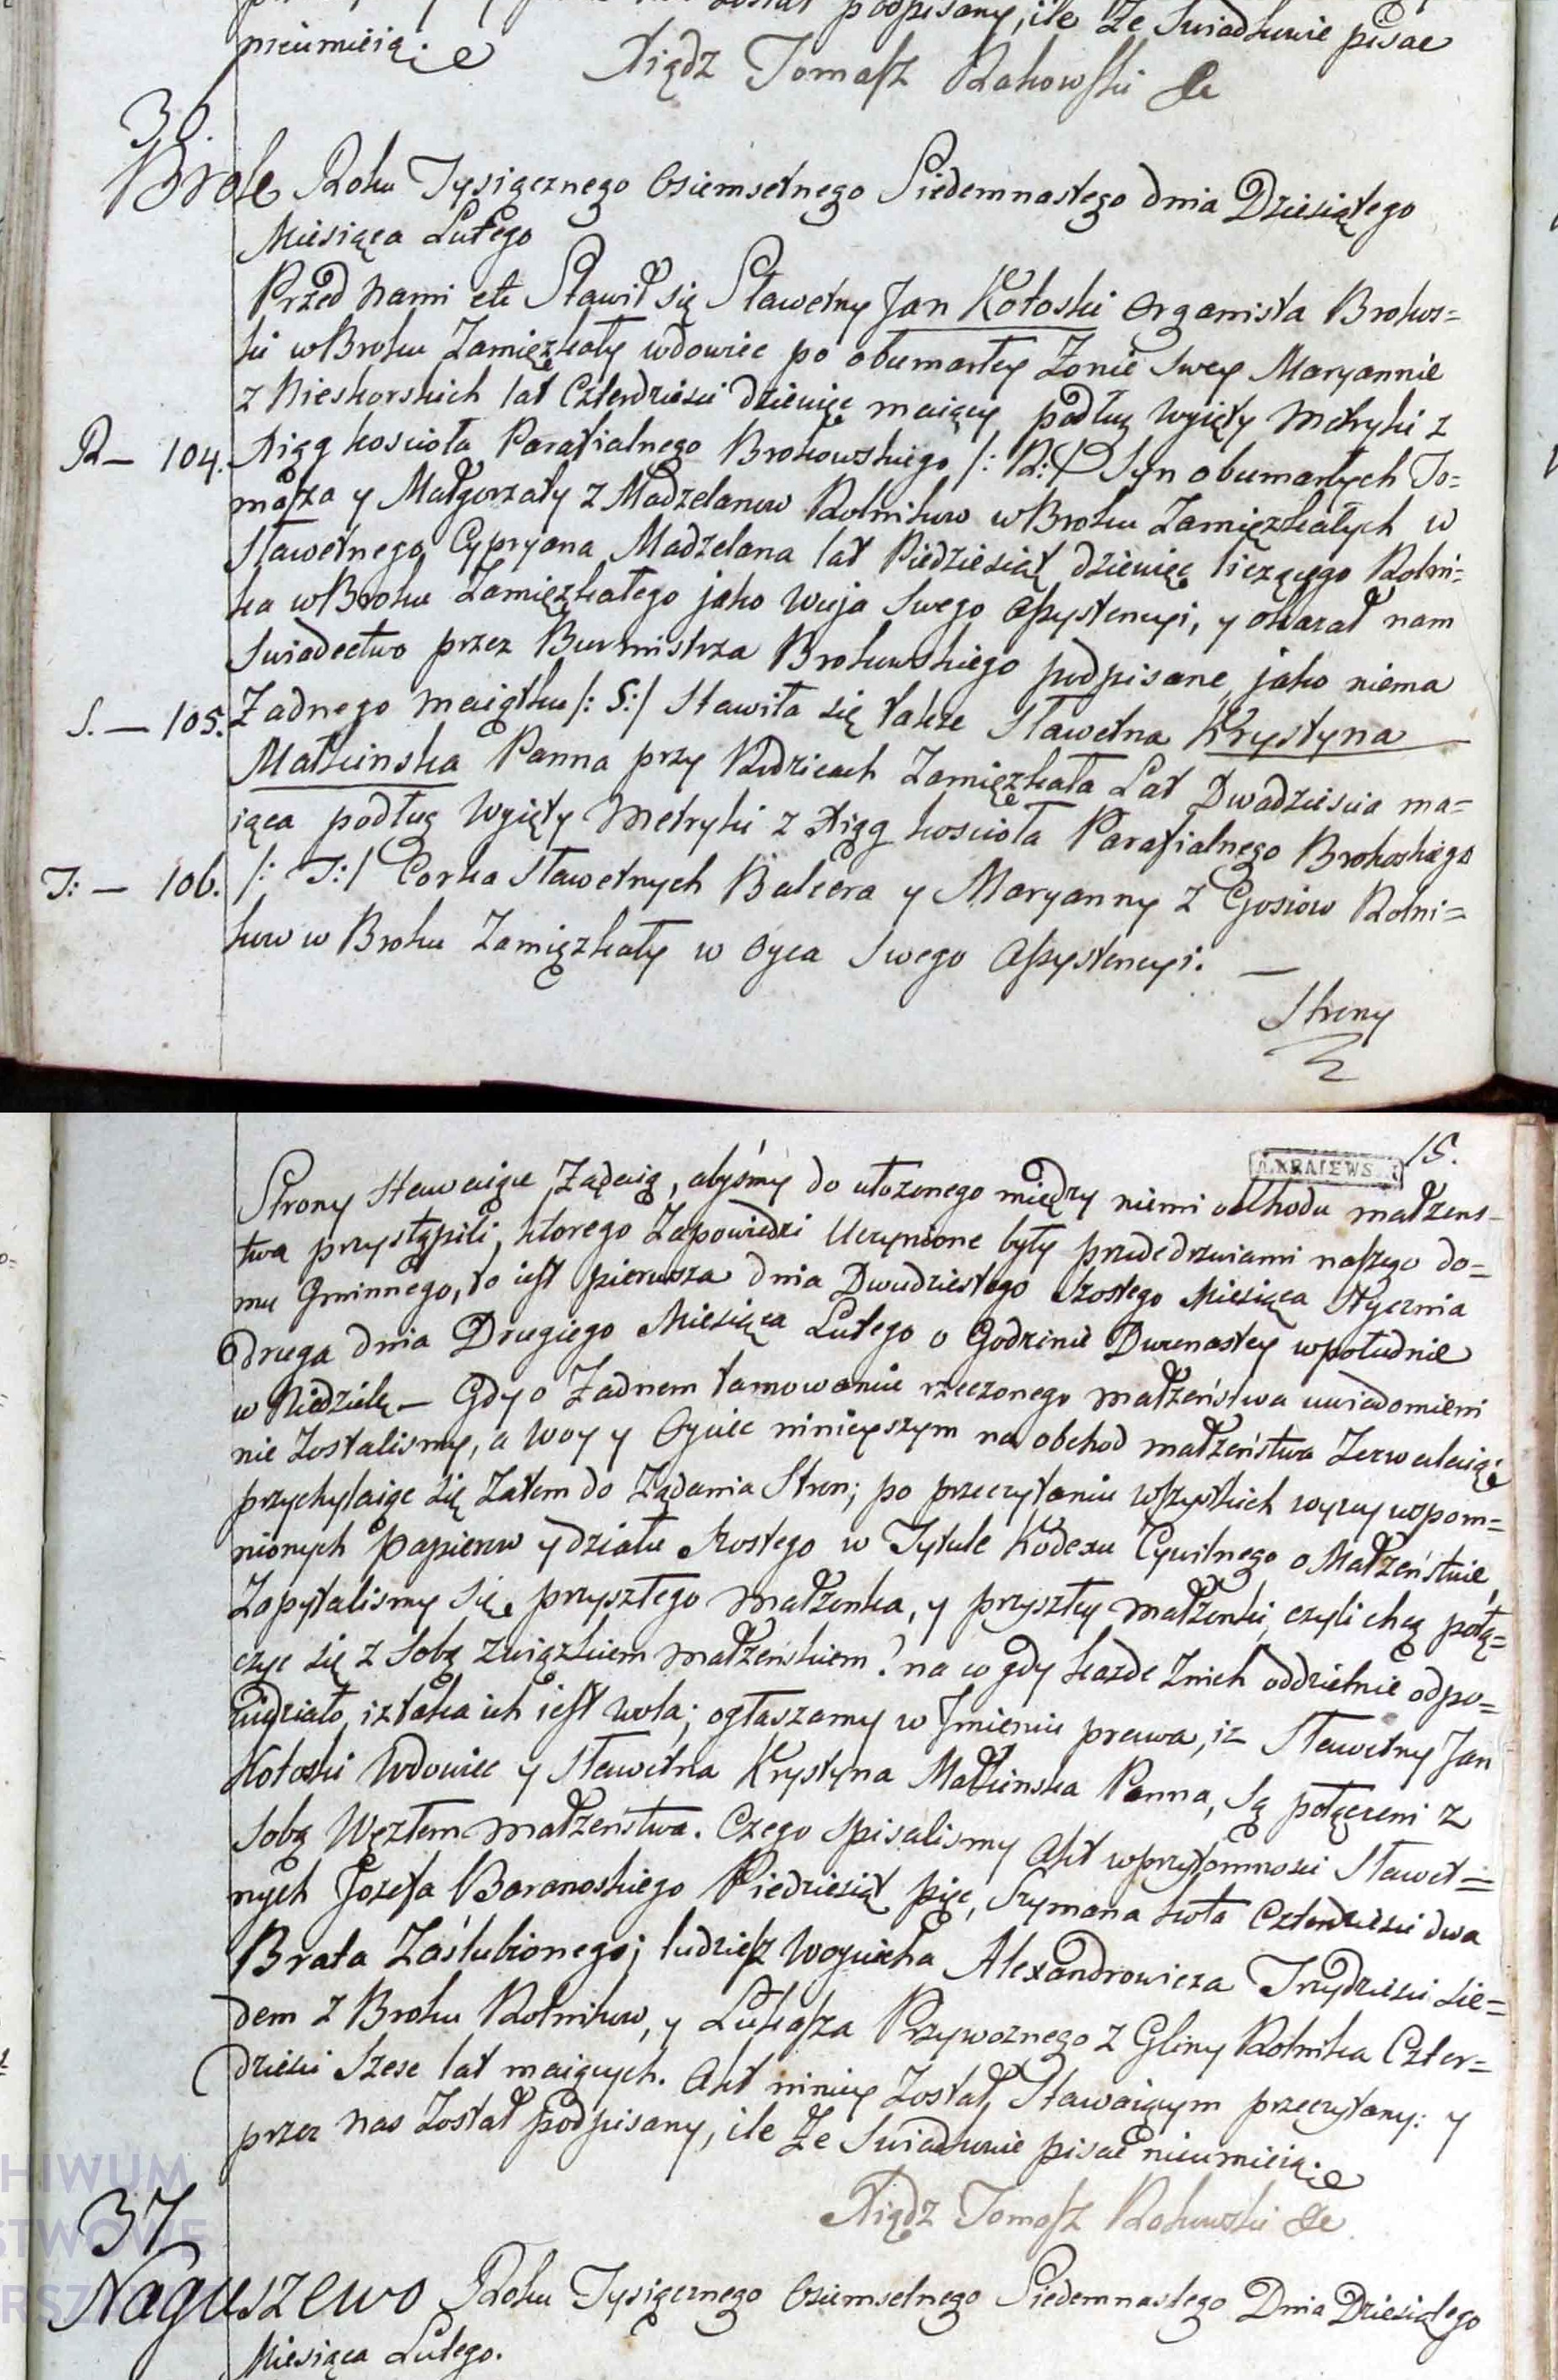 podpisany, ile że Swiadkowie pisac
nieumieią.
Xiądz Tomasz Rakowski
36.
Brok Roku Tysiącznego Osiemsetnego Siedemnastego dnia Dziesiątego
Miesiąca Lutego
Przed Nami etc Stawił się Sławetny Jan Kołoski Organista Brokos=
ki w Broku Zamięzkały wdowiec po obumarłey Zonie Swey Maryannie
z Nieskorskich lat Czterdziesci dziewięc maiący podług Wyięty Metryki z
R – 104. Xiąg koscioła Parafialnego Brokowskiego /: R:/ Syn obumarłych To=
masza y Małgorzaty z Madzelanow Rolnikow w Broku Zamięzkałych w
Sławetnego Cypryana Madzelana lat Piedziesiąt dziewięc liczącego Rolni=
ka w Broku Zamięzkałego jako Wuja Swego Assystencyi, y okazał nam
Swiadectwo przez Burmistrza Brokowskiego podpisane, jako niema
S. – 105. Zadnego Maiątku /: S:/ Stawiła się także Sławetna Krystyna
Małkinska Panna przy Rodzicach Zamięzkała Lat Dwadziescia ma=
iąca podług Wyięty Metryki z Xiąg koscioła Parafialnego Brokoskiego
T: – 106. /: T:/ Corka Sławetnych Balcera y Maryanny z Gosiow Rolni=
kow w Broku Zamięzkały w Oyca Swego Assystencyi. –
Strony
15.
Strony Stawaiące Ządaią, abyśmy do ułozonego między niemi obchodu małzens-
twa przystąpili, ktorego Zapowiedzi Uczynione były przededrzwiami naszego do=
mu Gminnego, to iest pierwsza dnia Dwudziestego Szostego Miesiąca Stycznia
druga dnia Drugiego Miesiąca Lutego o Godzinie Dwunastey wpołudnie
w Niedzielę – Gdy o Zadnem tamowaniu rzeczonego małzeństwa uwiadomieni
nie Zostalismy, a Woy y Oyciec ninieyszym na obchod małzeństwa Zezwalaią:
przychylaiąc się Zatem do Ządania Stron; po przeczytaniu wszystkich wyzey wspom=
nionych papierow y działu Szostego w Tytule Kodexu Cywilnego o Małzeństwie,
Zapytalismy się przyszłego małzonka, y przyszłey małzonki, czyli chcą połą=
czyc się z Sobą związkiem małzeńskiem? na co gdy kazde Znich oddzielnie odpo=
wiedziało, iz taka ich iest wola; ogłaszamy w Jmieniu prawa, iz Sławetny Jan
Kołoski Wdowiec y Sławetna Krystyna Małkinska Panna, Są połączeni z
Sobą Węzłem małzeństwa. Czego spisalismy Akt wprzytomnosci Sławet=
nych Jozefa Baranoskiego Piedziesiąt pięc, Szymana Czterdziesci dwa
Brata Zaślubionego; tudziesz Woyciecha Alexandrowicza Trzydziesci sie=
dem z Broku Rolnikow, y Łukasza Przywoznego z Gliny Rolnika Czter=
dziesci Szesc lat maiących. Akt ninieyszy Został Stawaiącym przeczytany: y
przez nas Został podpisany, ile Ze Swiadkowie pisac nieumieią.
Xiądz Tomasz Rakowski
37
Naguszewo Roku Tysiącznego Osiemsetnego Siedemnastego Dnia Dziesiątego
Miesiąca Lutego.